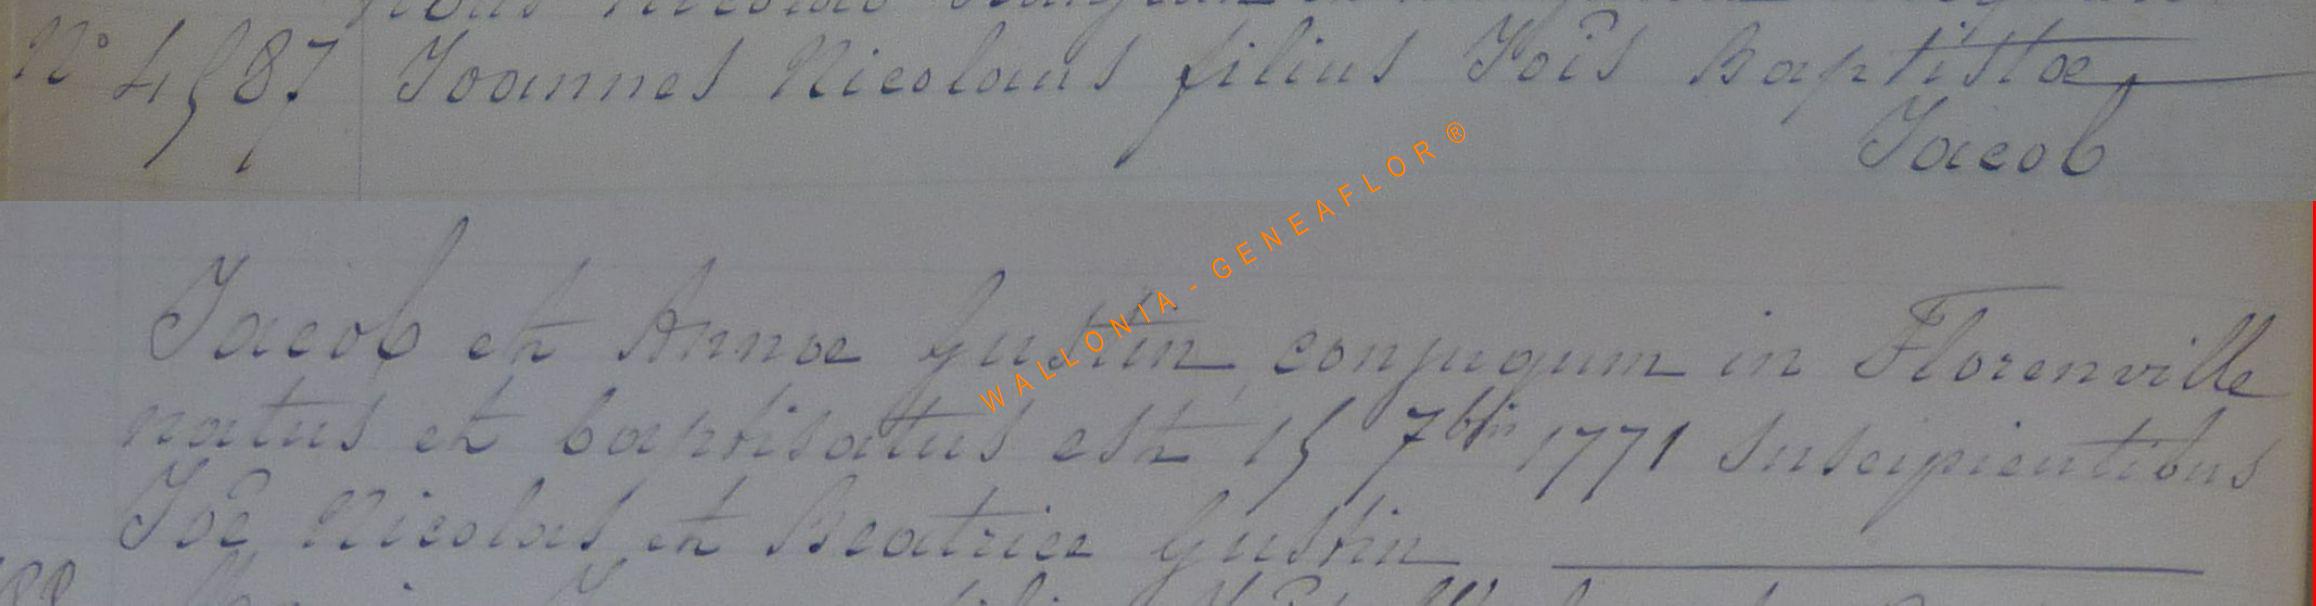 N° 4587 Joannes Nicolaus filius Jois Baptistæ
Jacob
Jacob et Annæ Gustin conjugum in Florenville
natus et baptisatus est 15 7bris 1771 suscipientibus
Joe Nicolas et Beatrice Gustin
WALLONIA - GENEAFLOR ®